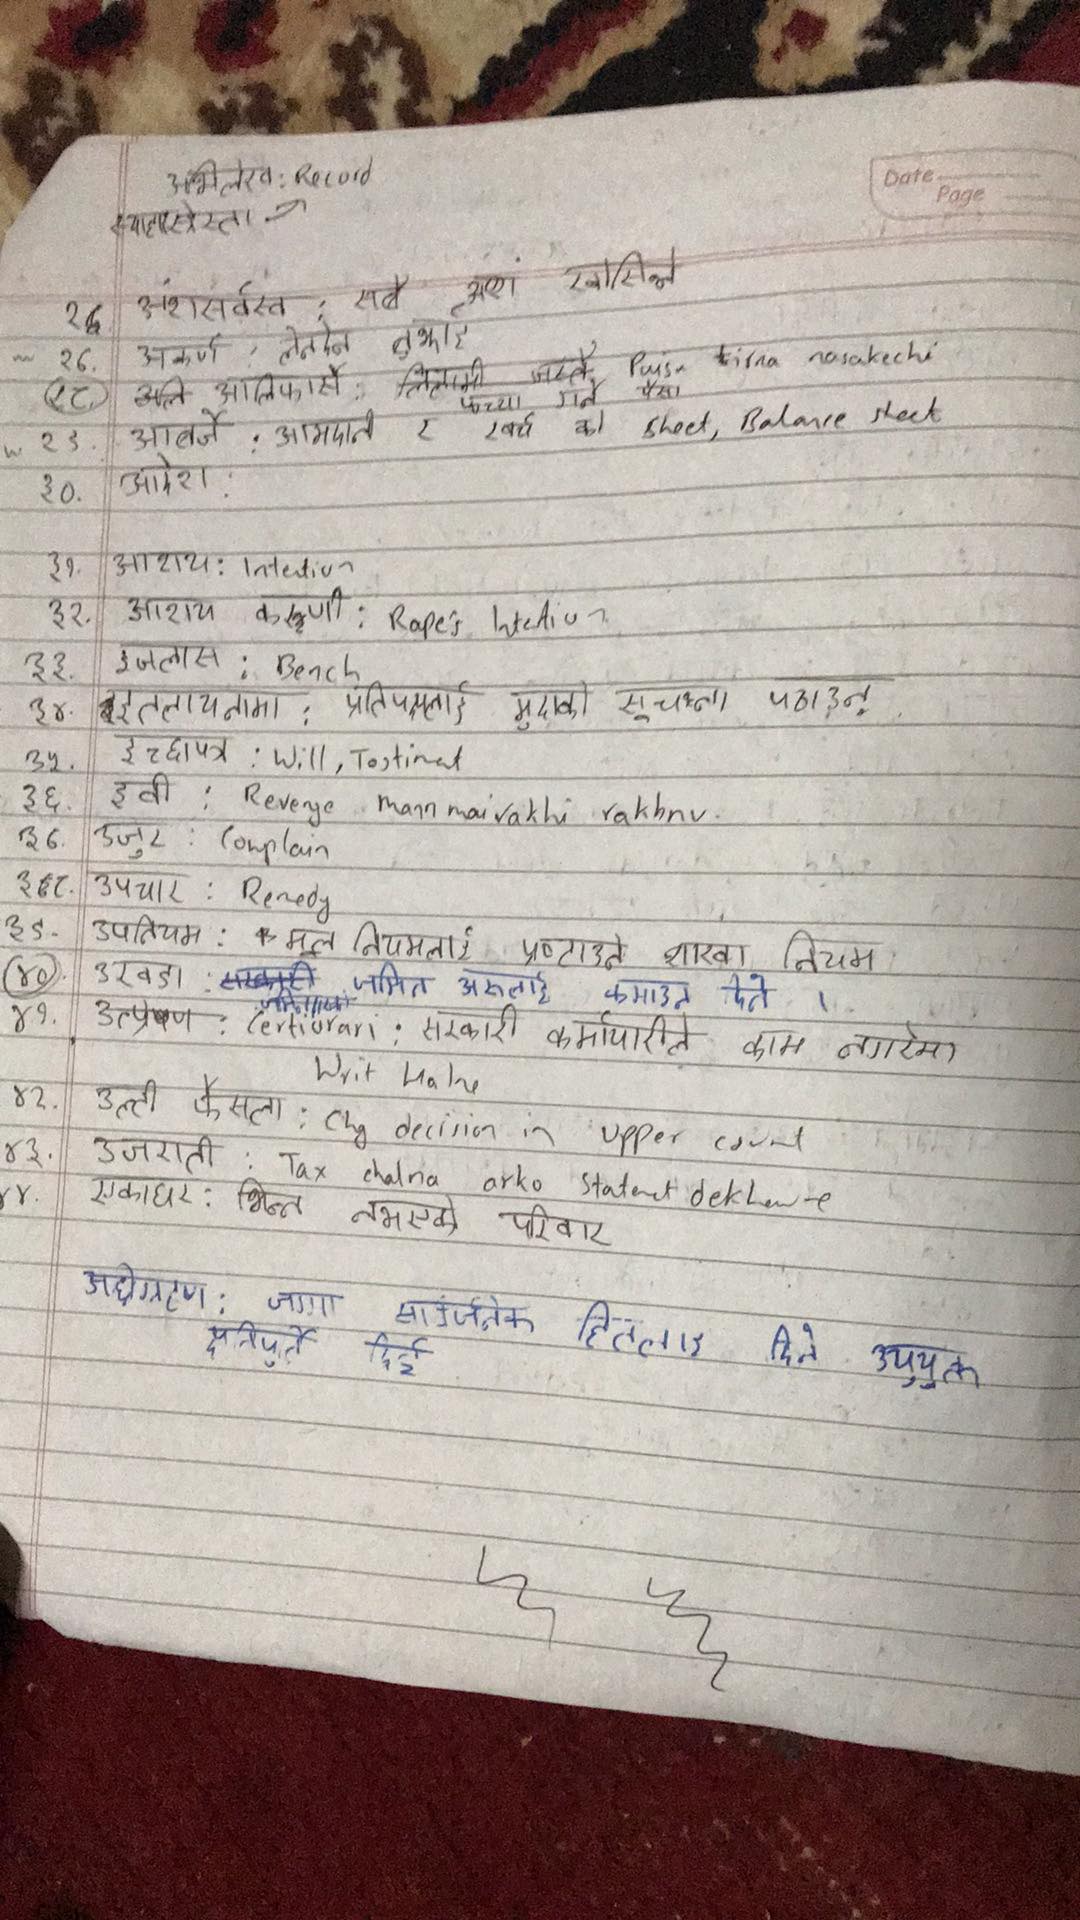 अभिलेख : Record
स्याहास्रेस्ता ->
Date
Page
२६ अंशसर्वस्व : सबै अंश खोसिने
२७. अकर्ण : लेनदेन बुझाइ
२८. अलि आलिफार्से : लिलामी जस्तै, Paisa tirna nasakechi
फच्या गर्ने पैसा
२९. आवर्जे : आमदानी र खर्च को sheet, Balance sheet
३०. आदेश :
३१. आशय : Intention
३२. आशय करणी : Rape's Intention
३३. इजलास : Bench
३४. इतलायनामा : प्रतिपक्षलाई मुद्दाको सूचना पठाउनु
३५. इच्छापत्र : Will, Tostiment
३६. इवी : Revenge mann mai rakhi rakhnu.
३७. उजुर : Complain
३८. उपचार : Remedy
३९. उपनियम : मूल नियमलाई प्रष्टाउने शाखा नियम
४०. उखडा : जमिन अरुलाई कमाउन दिने ।
४१. उत्प्रेषण : Certiorari : सरकारी कर्मचारीले काम नगरेमा
Writ Halne
४२. उल्टी फैसला : Chg decision in upper court
४३. उजराती : Tax chalna arko statement dekhaune
४४. एकाघर : भिन्न नभएको परिवार
अधिग्रहण : जग्गा सार्वजनिक हितलाइ दिने उपयुक्त
क्षतिपुर्ति दिई